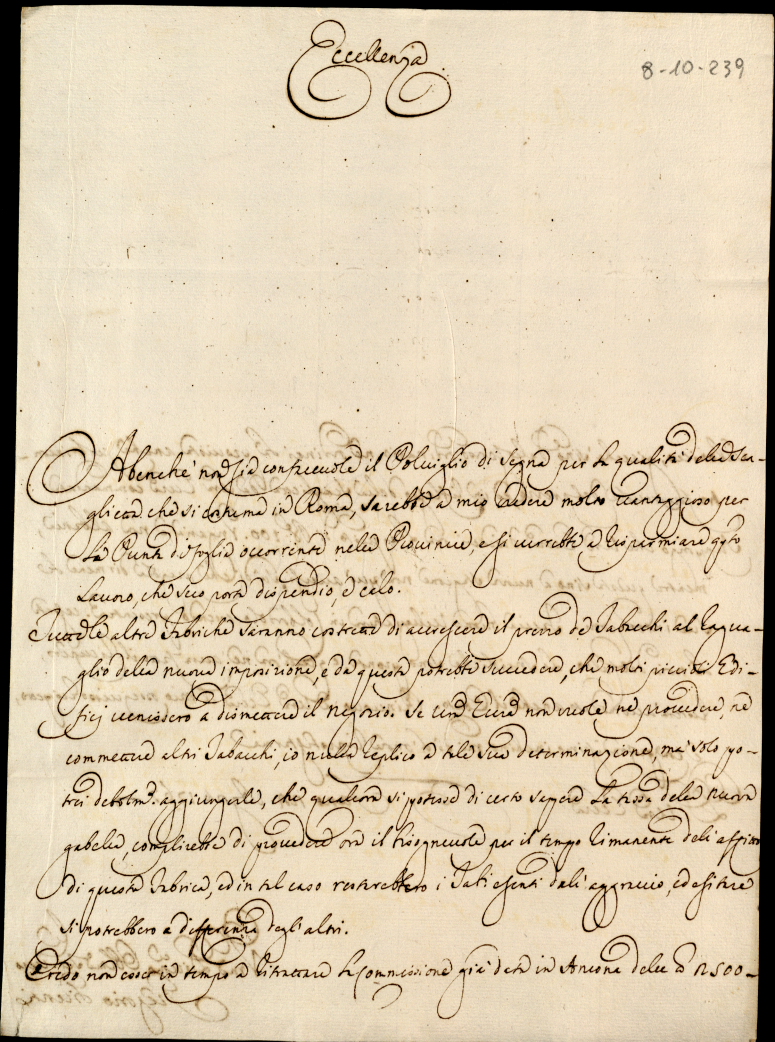 Eccellenza
8-10-239
Abenche non sia confaceuole il Polviglio di Segna per la qualità della Sca-
glietta che si costuma in Roma, sarebbe a mio credere molto vantaggioso per
la Punta di foglia occorrente nelle Provincie, e si verrebbe a risparmiare
Lavoro, che seco porta dispendio, e calo.
Tutte le altre fabriche saranno costrette di accrescere il prezzo de Tabacchi al raggua-
glio della nuova imposizione, e da questa potrebbe succedere, che molti piccioli Edi-
fici venissero a dismettere il negozio. Se non vuole ne provedere, ne
commettere altri Tabacchi, io nulla replico a tale sua determinazione, ma solo po-
trei aggiungerle, che qualora si potesse di certo sapere la tassa della nuova
gabella, complirebbe di provedere ora il bisognevole per il tempo rimanente dell'affitto
di questa fabrica, ed in tal caso restarebbero i Tab: esenti dall'aggravio, ed esitare
si potrebbero a differenza degl'altri.
Credo non esser in tempo a ritrattare la Commissione già data in Ancona delle 2500-